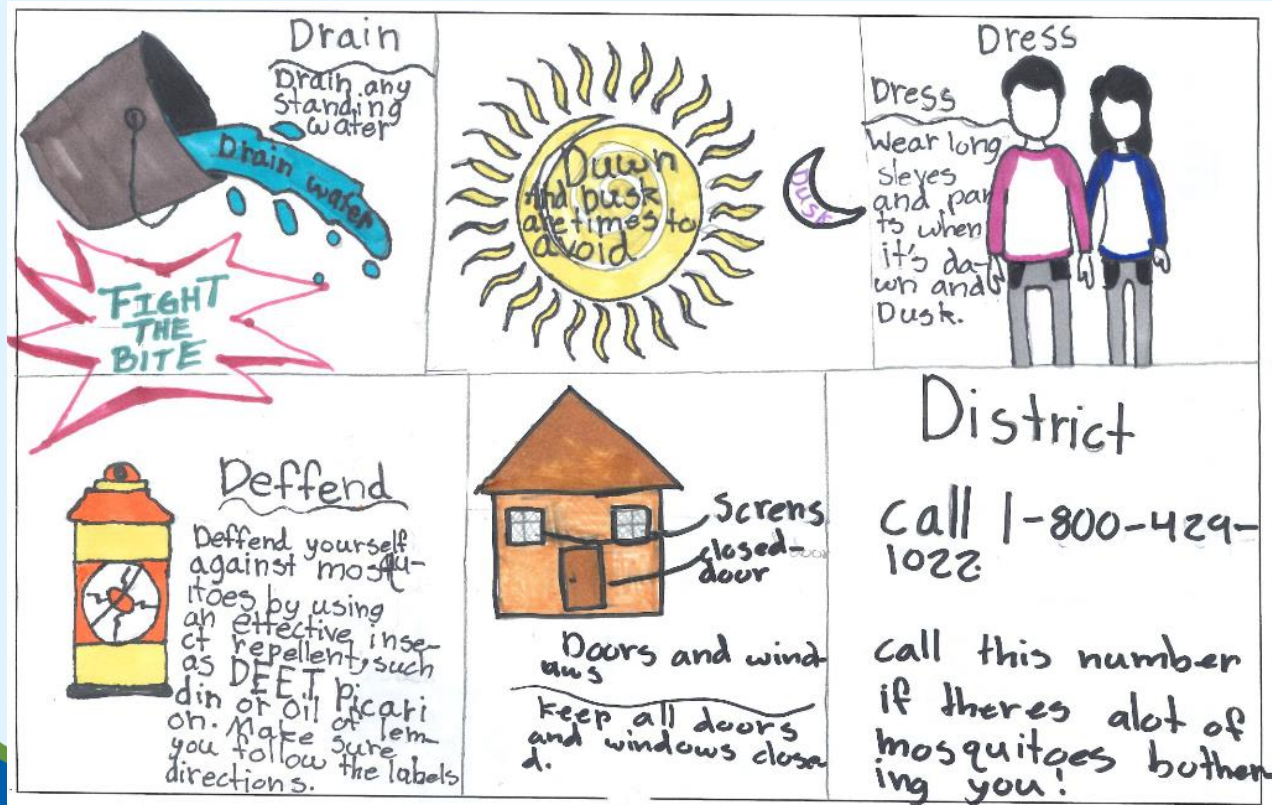 Drain
Drain any
standing
water
Drain water
FIGHT
THE
BITE
Dawn
And Dusk
are times to
avoid
Dusk
Dress
Dress
Wear long
sleves
and pan
ts when
it's da-
wn and
Dusk.
Deffend
Deffend yourself
against mosqu-
itoes by using
an effective inse-
ct repellent, such
as DEET Pi
din or oil Picari
on. Make of lem-
you follow sure
directions. the labels
Screns
closed-
door
Doors and wind-
aws
keep all doors
and windows close
d.
District
call 1-800-429-
1022
call this number
if theres alot of
mosquitoes bother
ing you!